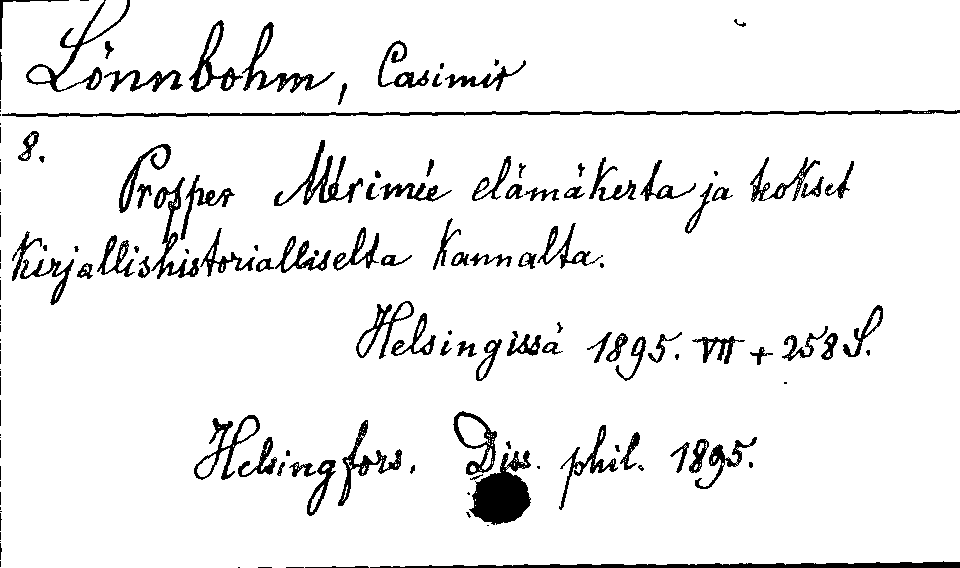 Lönnbohm, Casimir
8.
Prosper Mérimée elämäkerta ja teokset
kirjallishistorialliselta kannalta.
Helsingissä 1895. VII + 258 S.
Helsingfors. Diss. phil. 1895.